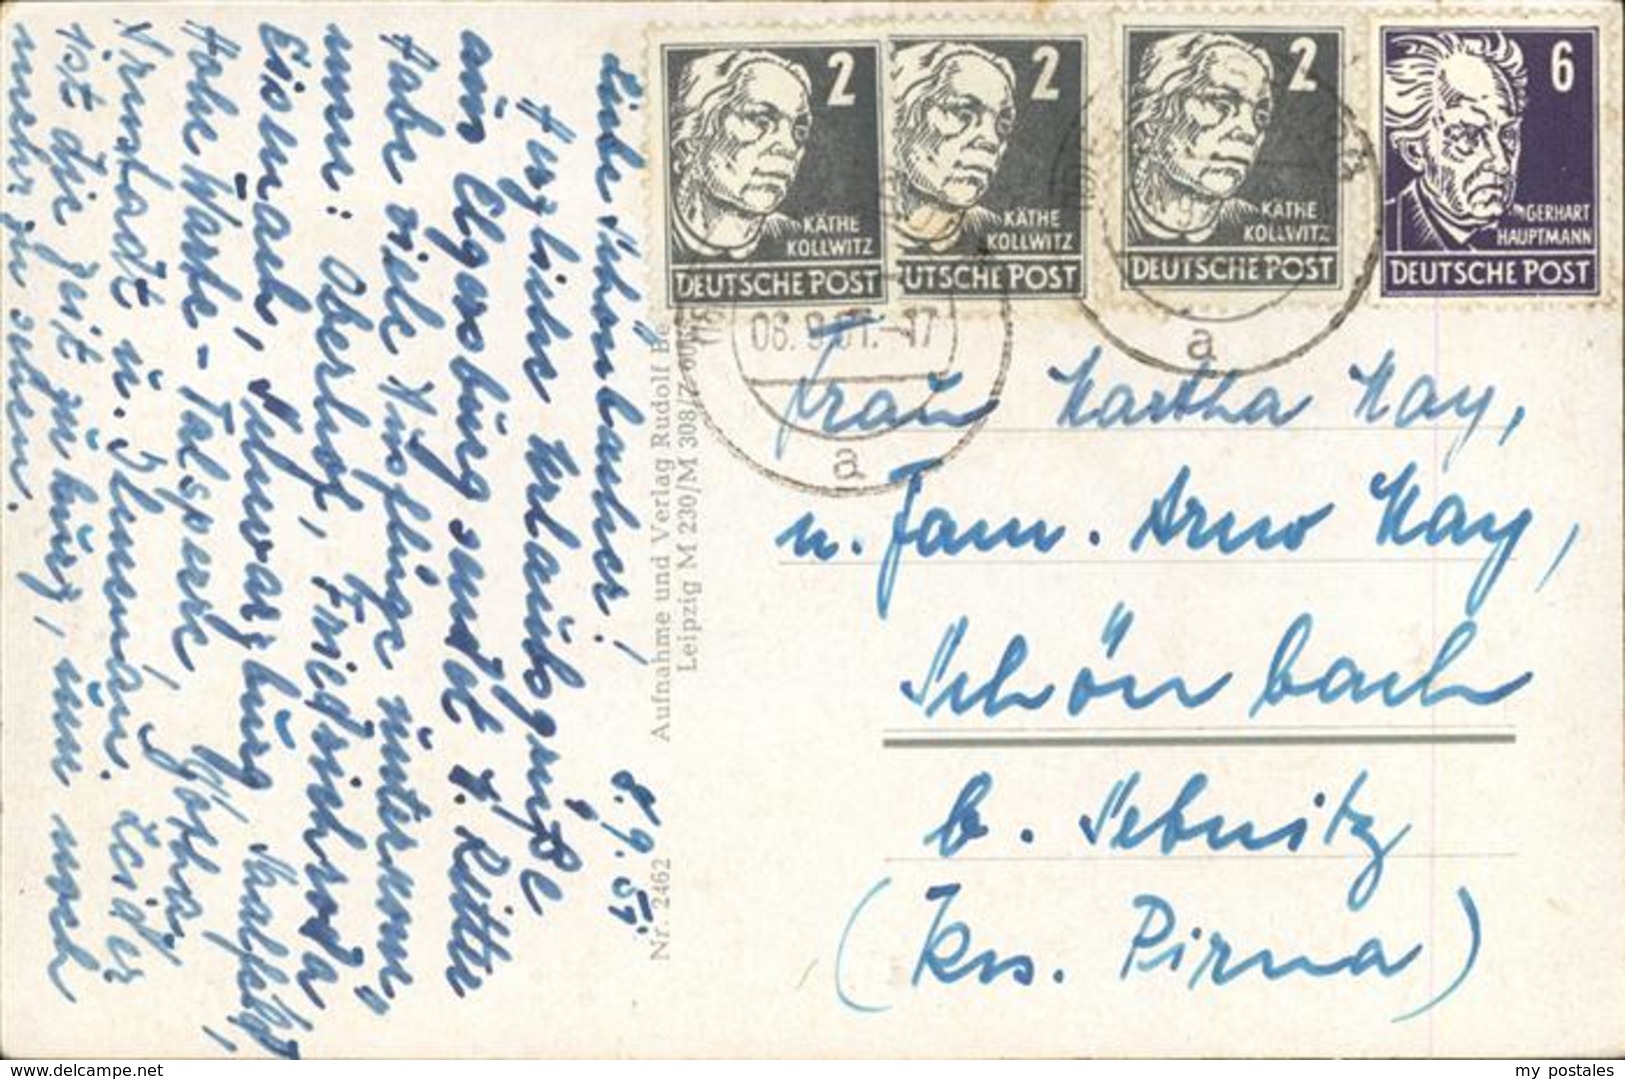 2
KÄTHE
KOLLWITZ
DEUTSCHE POST
2
KÄTHE
KOLLWITZ
UTSCHE POST
2
KÄTHE
KOLLWITZ
DEUTSCHE POST
6
GERHART
HAUPTMANN
DEUTSCHE POST
06. 9. 51.-17
a
a
8. 9. 51.
Liebe Schönbacher!
Herzliche Urlaubsgrüße
aus Elgersburg sendet
Habe viele Ausflüge unternom-
men: Oberhof, Friedrichroda
Eisenach, Schwarzburg, Saalfeld,
Hohe Warte-Talsperre, Gotha,
Arnstadt u. Ilmenau. Leider
ist die Zeit zu kurz, um noch
mehr zu sehen.
Nr. 2462 Aufnahme und Verlag Rudolf Be
Leipzig M 230/M 308/Z
Frau Martha May,
u. Fam. Arno May,
Schönbach
b. Sebnitz
(Krs. Pirna)
my postales